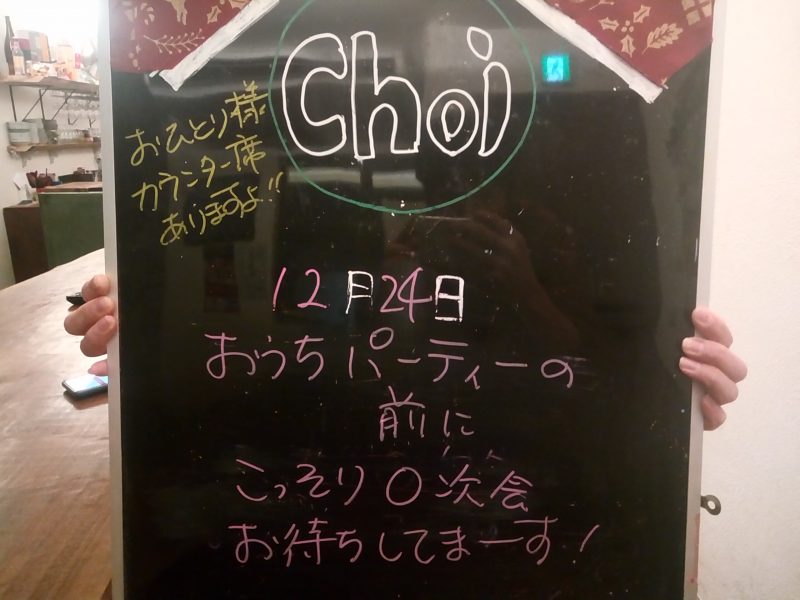 Choi
おひとり様
カウンター席
ありますよ!!
12月24日
おうちパーティーの
前に
こっそり〇次会
お待ちしてまーす!